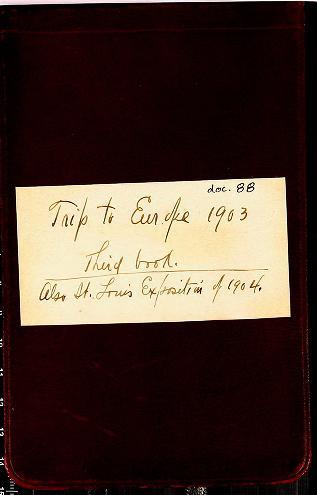 doc. 88
Trip to Europe 1903
Third book.
Also St. Louis Exposition of 1904.